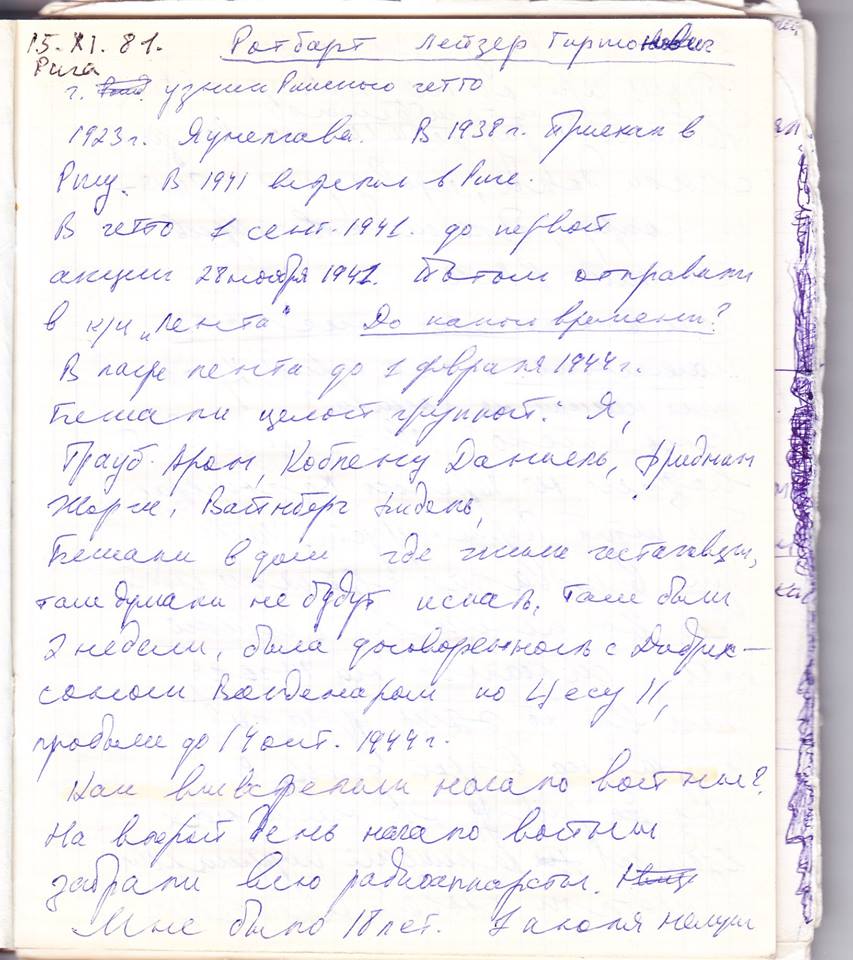 15.XI.81. Ротбарт Лейзер Гиршонович
Рига
г. узник Рижского гетто
1923 г. Яунелгава. В 1938 г. Приехал в
Ригу. В 1941 встретил в Риге.
В гетто 1 сент. 1941. до первой
акции 28 ноября 1941. Потом отправили
в к/ц „Лента" До какого времени?
В лагере Лента до 1 февраля 1944 г.
Бежали целой группой: Я,
Трауб Арон, Даниель, Фридман
Жорж, Вайнберг
Бежали в дом где жили гестаповцы,
там думали не будут искать, там были
2 недели, была договоренность с
Волдемаром по Цесу 11,
пробыли до 14 окт. 1944 г.
Как вы встретили начало войны?
На второй день начало войны
забрали всю радиоаппараты.
Мне было 18 лет. 1 июля немцы